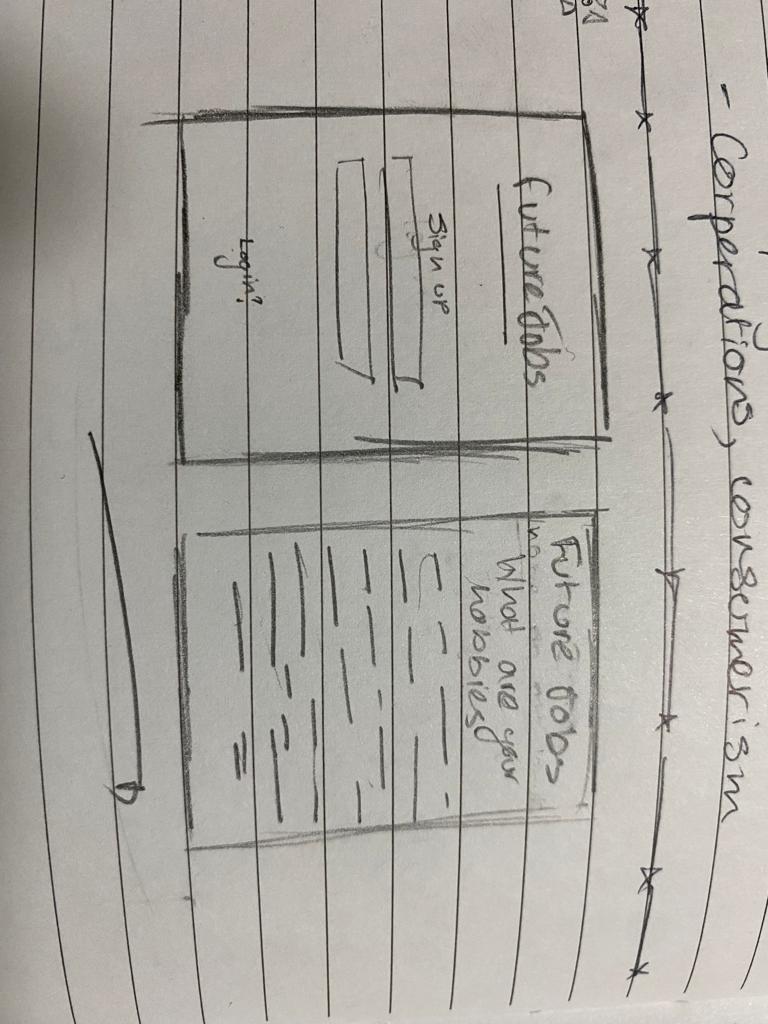 - Corperations, consumerism
Future Jobs
Sign up
Login?
Future Jobs
What are your
hobbies